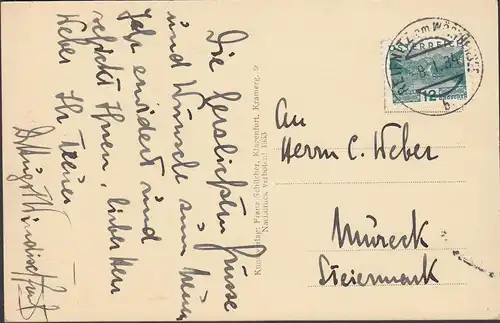 Die herzlichsten Grüsse
und Wünsche zum Neuen
Jahr erwidert und
schickt Ihnen, lieber Herr
Weber Ihr treuer
Windisch
Kunstverlag Franz Schilcher, Klagenfurt, Kramerg.
Nachdruck verboten! 1933
REIFNITZ am WÖRTHERSEE
8.I.34
b
ÖSTERREICH
12
An
Herrn C. Weber
Mureck
Steiermark